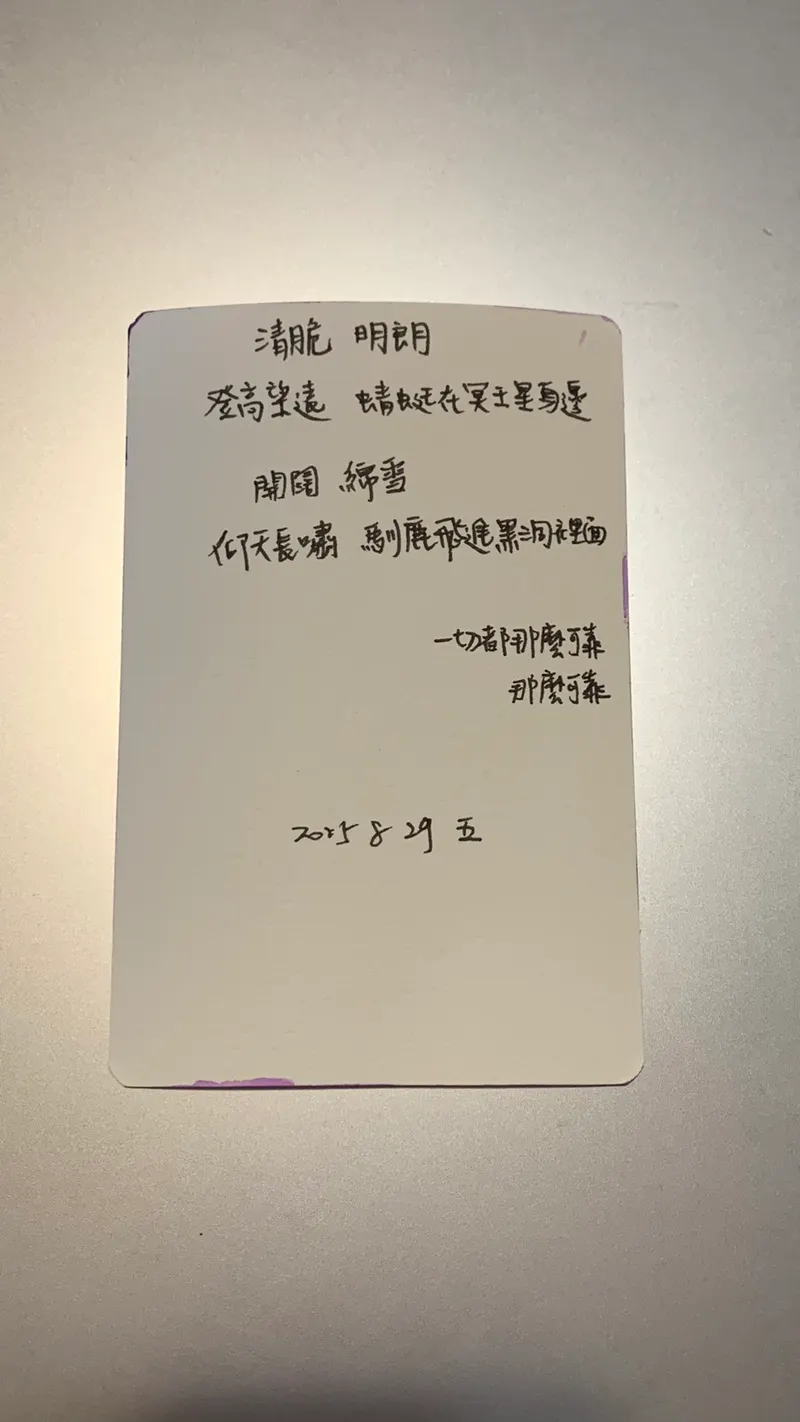 清脆 明朗
登高望遠 蜻蜓在冥王星身邊
開闊
仰天長嘯 馴鹿飛進黑洞裡面
一切都那麼可靠
那麼可靠
2025 8 29 五